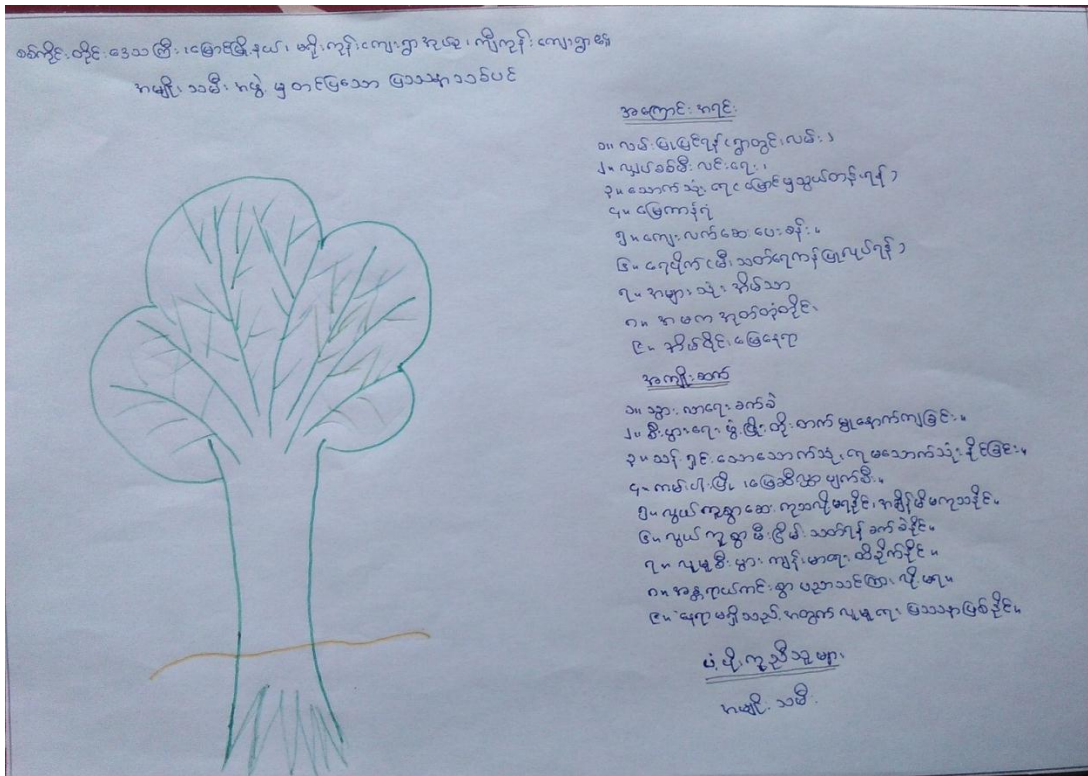 စစ်ကိုင်းတိုင်းဒေသကြီး၊ မြောင်မြို့နယ်၊ မကျီးကုန်းကျေးရွာအုပ်စု၊ ကျီကုန်းကျေးရွာ၏
အမျိုးသမီးအဖွဲ့မှတင်ပြသော ပြဿနာသစ်ပင်
အကြောင်းအရင်း
၁။ လမ်းပြုပြင်ရန် (ရွာတွင်းလမ်း)
၂။ လျှပ်စစ်မီးလင်းရေး၊
၃။ သောက်သုံးရေ (မြောင်မှသွယ်တန်းရန်)
၄။ မြေကာနံရံ
၅။ ကျေးလက်ဆေးပေးခန်း။
၆။ ရေပိုက် (မီးသတ်ရေကန်ပြုလုပ်ရန်)
၇။ အများသုံးအိမ်သာ
၈။ အမက အုတ်တံတိုင်း
၉။ အိမ်ဆိုင်းမြေနေရာ
အကျိုးဆက်
၁။ သွားလာရေးခက်ခဲ
၂။ စီးပွားရေးဖွံ့ဖြိုးတိုးတက်မှုနောက်ကျခြင်း။
၃။ သန့်ရှင်းသောသောက်သုံးရေမသောက်သုံးနိုင်ခြင်း။
၄။ ကမ်းပါးပြို၊ မြေဆီလွှာပျက်စီး။
၅။ လွယ်ကူစွာဆေးကုသလို့မရနိုင်၊ အချိန်မီမကုသနိုင်။
၆။ လွယ်ကူစွာမီးငြိမ်းသတ်ရန်ခက်ခဲနိုင်။
၇။ လူမှုစီးပွားကျန်းမာရေးထိခိုက်နိုင်။
၈။ အန္တရာယ်ကင်းစွာပညာသင်ကြားလို့မရ။
၉။ နေရာမရှိသည့်အတွက်လူမှုရေးပြဿနာဖြစ်နိုင်။
ပံ့ပိုးကူညီသူများ
အမျိုးသမီး